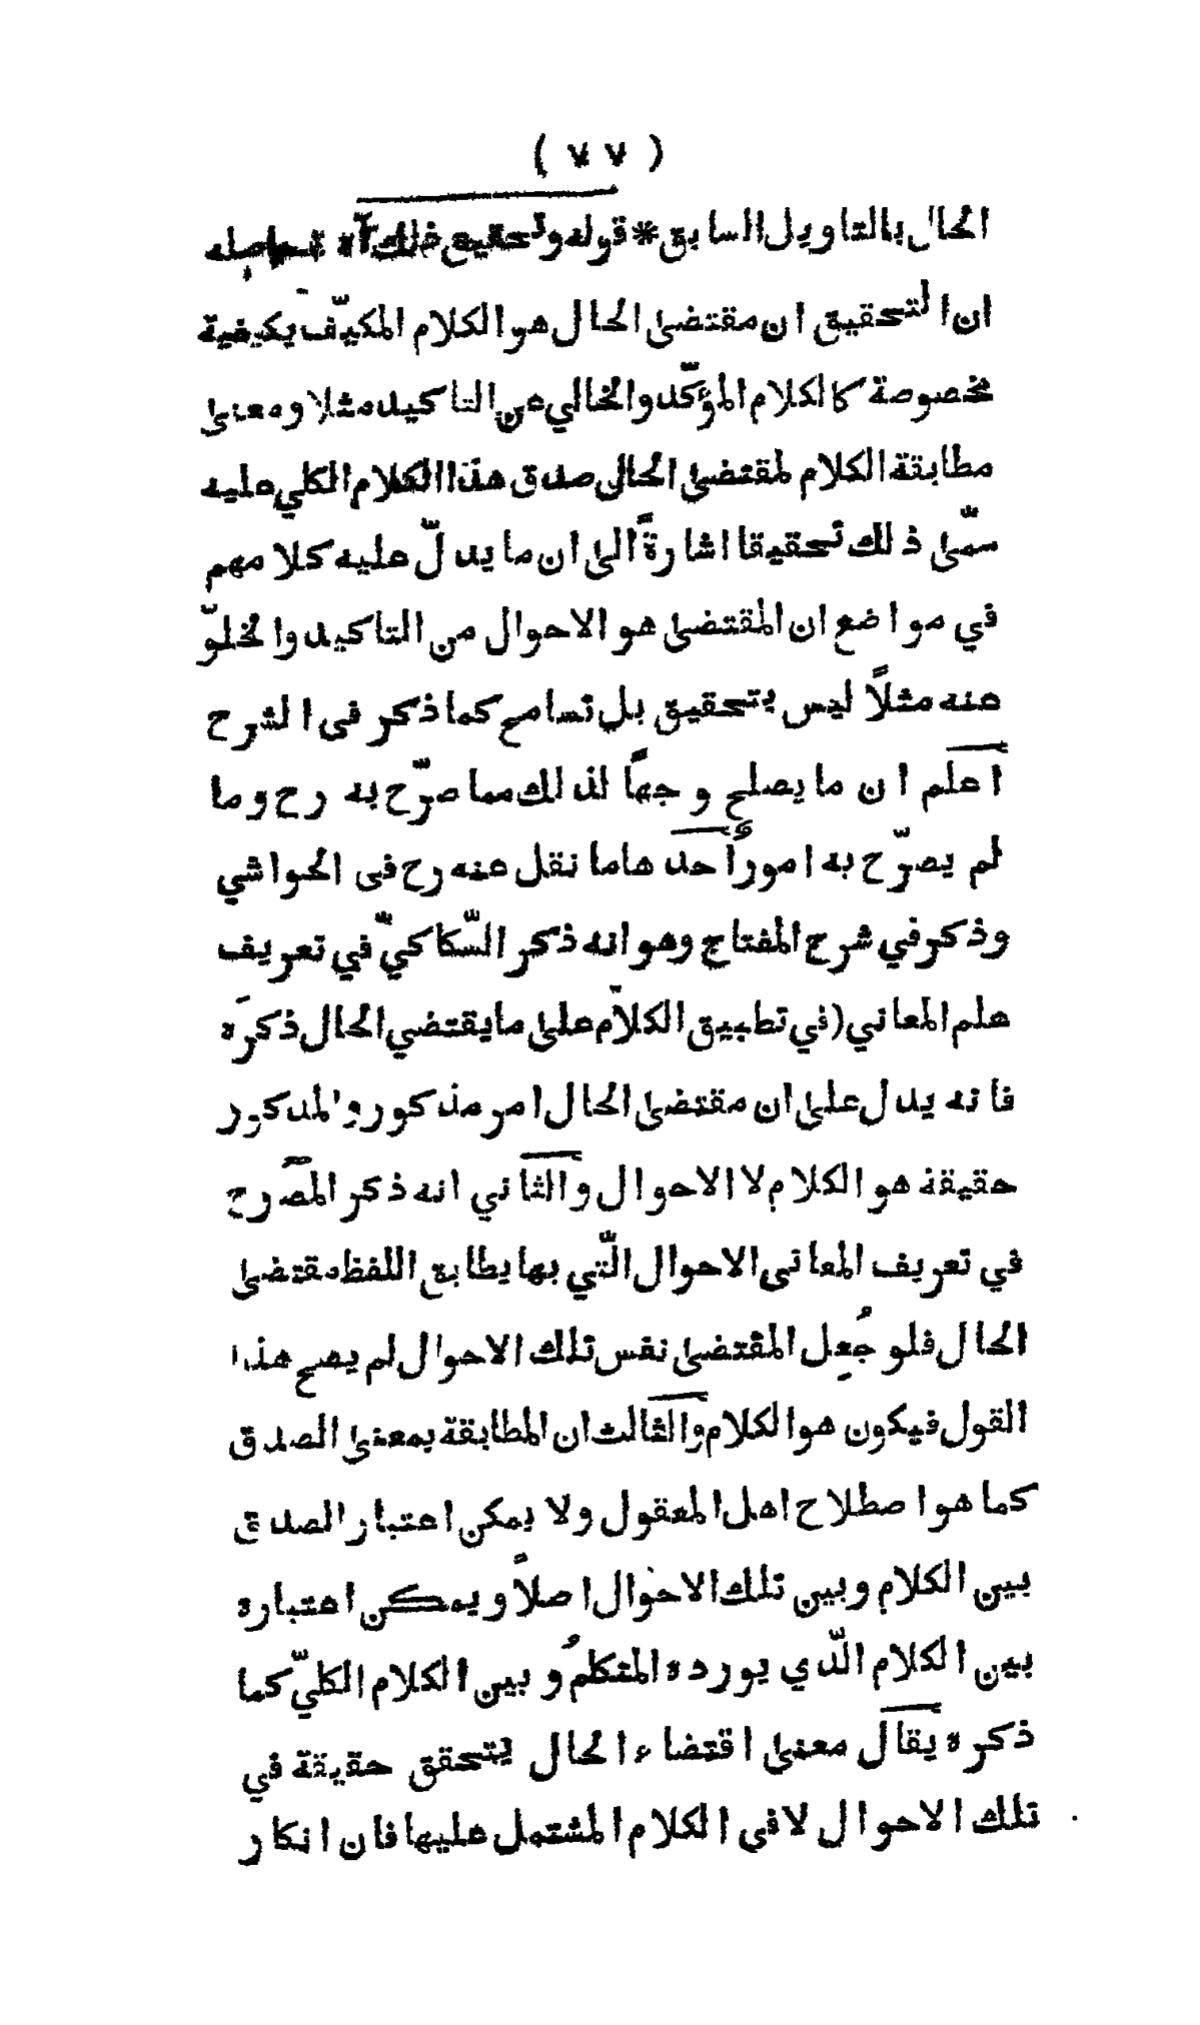 ( ٧٧ )
الحال بالتاويل السابق * قوله وتحقيق ذلك آه حاصله
ان التحقيق ان مقتضى الحال هو الكلام المكيّف بكيفية
مخصوصة كالكلام المؤكّد والخالي عن التاكيد مثلا ومعنى
مطابقة الكلام لمقتضى الحال صدق هذا الكلام الكلي عليه
سمّى ذلك تحقيقا اشارةً الى ان ما يدلّ عليه كلامهم
في مواضع ان المقتضى هو الاحوال من التاكيد والخلوّ
عنه مثلاً ليس بتحقيق بل تسامح كما ذكر فى الشرح
اعلم ان ما يصلح وجهاً لذلك مما صرّح به رح وما
لم يصرّح به امورٌ احدهاما نقل عنه رح فى الحواشي
وذكر في شرح المفتاح وهو انه ذكر السّكاكيّ في تعريف
علم المعاني (في تطبيق الكلام على ما يقتضي الحال ذكره
فانه يدل على ان مقتضى الحال امر مذكور والمذكور
حقيقة هو الكلام لا الاحوال والثاني انه ذكر المصّ رح
في تعريف المعانى الاحوال الّتي بها يطابق اللفظ مقتضى
الحال فلو جُعِل المقتضى نفس تلك الاحوال لم يصح هذا
القول فيكون هو الكلام والثالث ان المطابقة بمعنى الصدق
كما هو اصطلاح اهل المعقول ولا يمكن اعتبار الصدق
بين الكلام وبين تلك الاحوال اصلاً ويمكن اعتباره
بين الكلام الّذي يورده المتكلمُ وبين الكلام الكليّ كما
ذكره يقال معنى اقتضاء الحال يتحقق حقيقة في
تلك الاحوال لا فى الكلام المشتمل عليها فان انكار